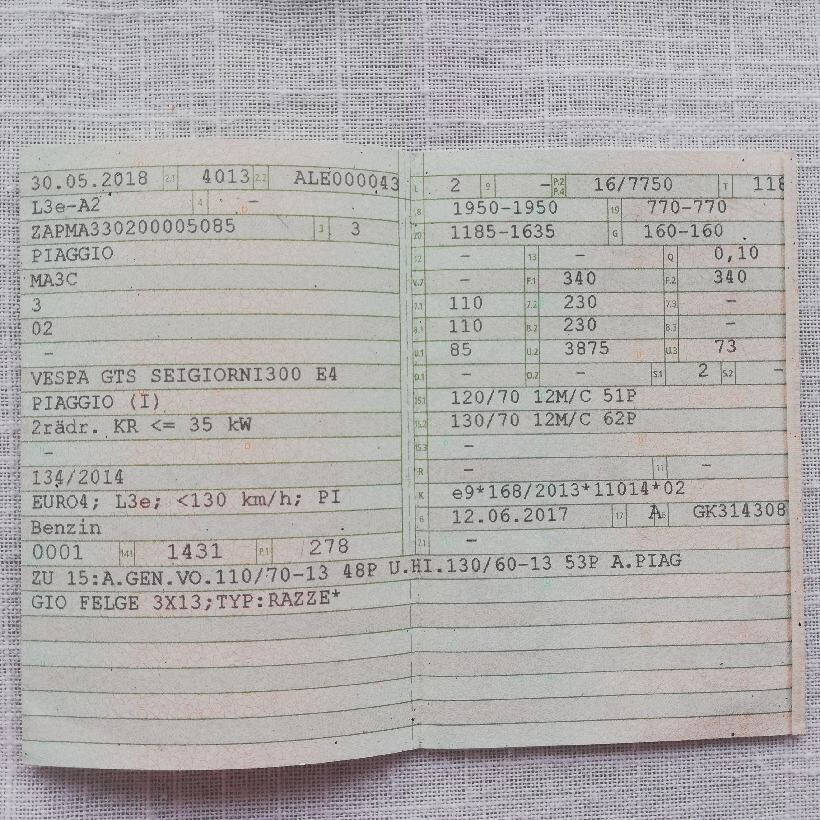 30.05.2018 2.1 4013 2.2 ALE000043
L3e-A2 4 -
ZAPMA330200005085 3 3
PIAGGIO
MA3C
3
02
-
VESPA GTS SEIGIORNI300 E4
PIAGGIO (I)
2rädr. KR <= 35 kW
-
134/2014
EURO4; L3e; <130 km/h; PI
Benzin
0001 14.1 1431 P.1 278
L 2 9 - P.2 P.4 16/7750 T 118
18 1950-1950 19 770-770
20 1185-1635 G 160-160
12 - 13 - Q 0,10
V.7 - F.1 340 F.2 340
7.1 110 7.2 230 7.3 -
8.1 110 8.2 230 8.3 -
U.1 85 U.2 3875 U.3 73
O.1 - O.2 - S.1 2 S.2 -
15.1 120/70 12M/C 51P
15.2 130/70 12M/C 62P
15.3 -
R - 11 -
K e9*168/2013*11014*02
6 12.06.2017 17 A 16 GK314308
21 -
ZU 15:A.GEN.VO.110/70-13 48P U.HI.130/60-13 53P A.PIAG
GIO FELGE 3X13;TYP:RAZZE*